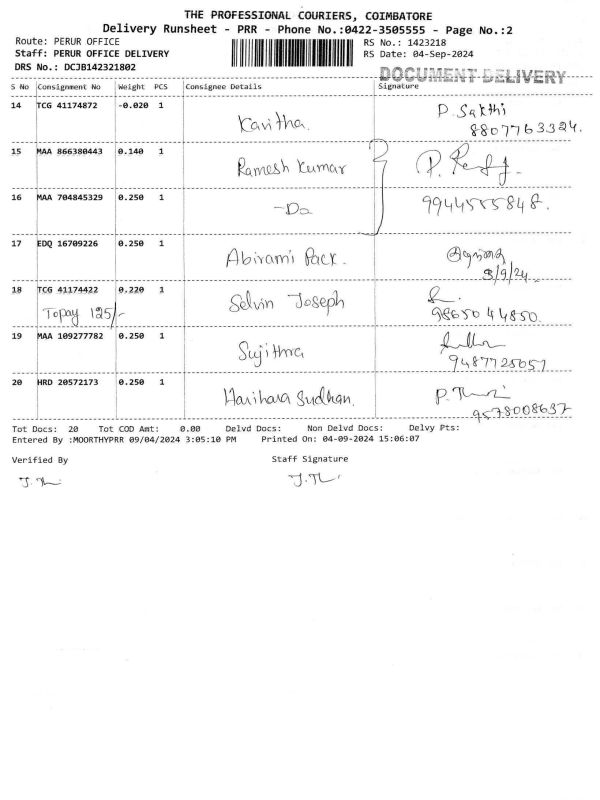 THE PROFESSIONAL COURIERS, COIMBATORE
Delivery Runsheet - PRR - Phone No.:0422-3505555 - Page No.:2
Route: PERUR OFFICE RS No.: 1423218
Staff: PERUR OFFICE DELIVERY RS Date: 04-Sep-2024
DRS No.: DCJB142321802
DOCUMENT DELIVERY
S No Consignment No Weight PCS Consignee Details Signature
14 TCG 41174872 -0.020 1 Kavitha. P. Sakthi
8807763324.
15 MAA 866380443 0.140 1 Ramesh Kumar
16 MAA 704845329 0.250 1 -Do 9944555848.
17 EDQ 16709226 0.250 1 Abirami Pack.
3/9/24
18 TCG 41174422 0.220 1 Selvin Joseph
Topay 125/- 9865044850.
19 MAA 109277782 0.250 1 Sujithra
9487725057
20 HRD 20572173 0.250 1 Harihara Sudhan.
9578008637
Tot Docs: 20 Tot COD Amt: 0.00 Delvd Docs: Non Delvd Docs: Delvy Pts:
Entered By :MOORTHYPRR 09/04/2024 3:05:10 PM Printed On: 04-09-2024 15:06:07
Verified By Staff Signature